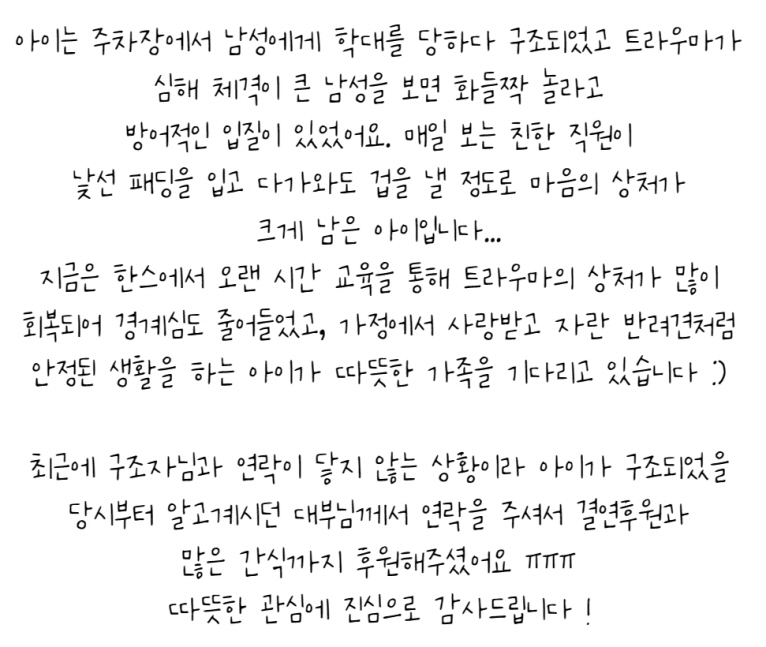 아이는 주차장에서 남성에게 학대를 당하다 구조되었고 트라우마가
심해 체격이 큰 남성을 보면 화들짝 놀라고
방어적인 입질이 있었어요. 매일 보는 친한 직원이
낯선 패딩을 입고 다가와도 겁을 낼 정도로 마음의 상처가
크게 남은 아이입니다...
지금은 한스에서 오랜 시간 교육을 통해 트라우마의 상처가 많이
회복되어 경계심도 줄어들었고, 가정에서 사랑받고 자란 반려견처럼
안정된 생활을 하는 아이가 따뜻한 가족을 기다리고 있습니다 :)
최근에 구조자님과 연락이 닿지 않는 상황이라 아이가 구조되었을
당시부터 알고계시던 대부님께서 연락을 주셔서 결연후원과
많은 간식까지 후원해주셨어요 ㅠㅠㅠ
따뜻한 관심에 진심으로 감사드립니다 !